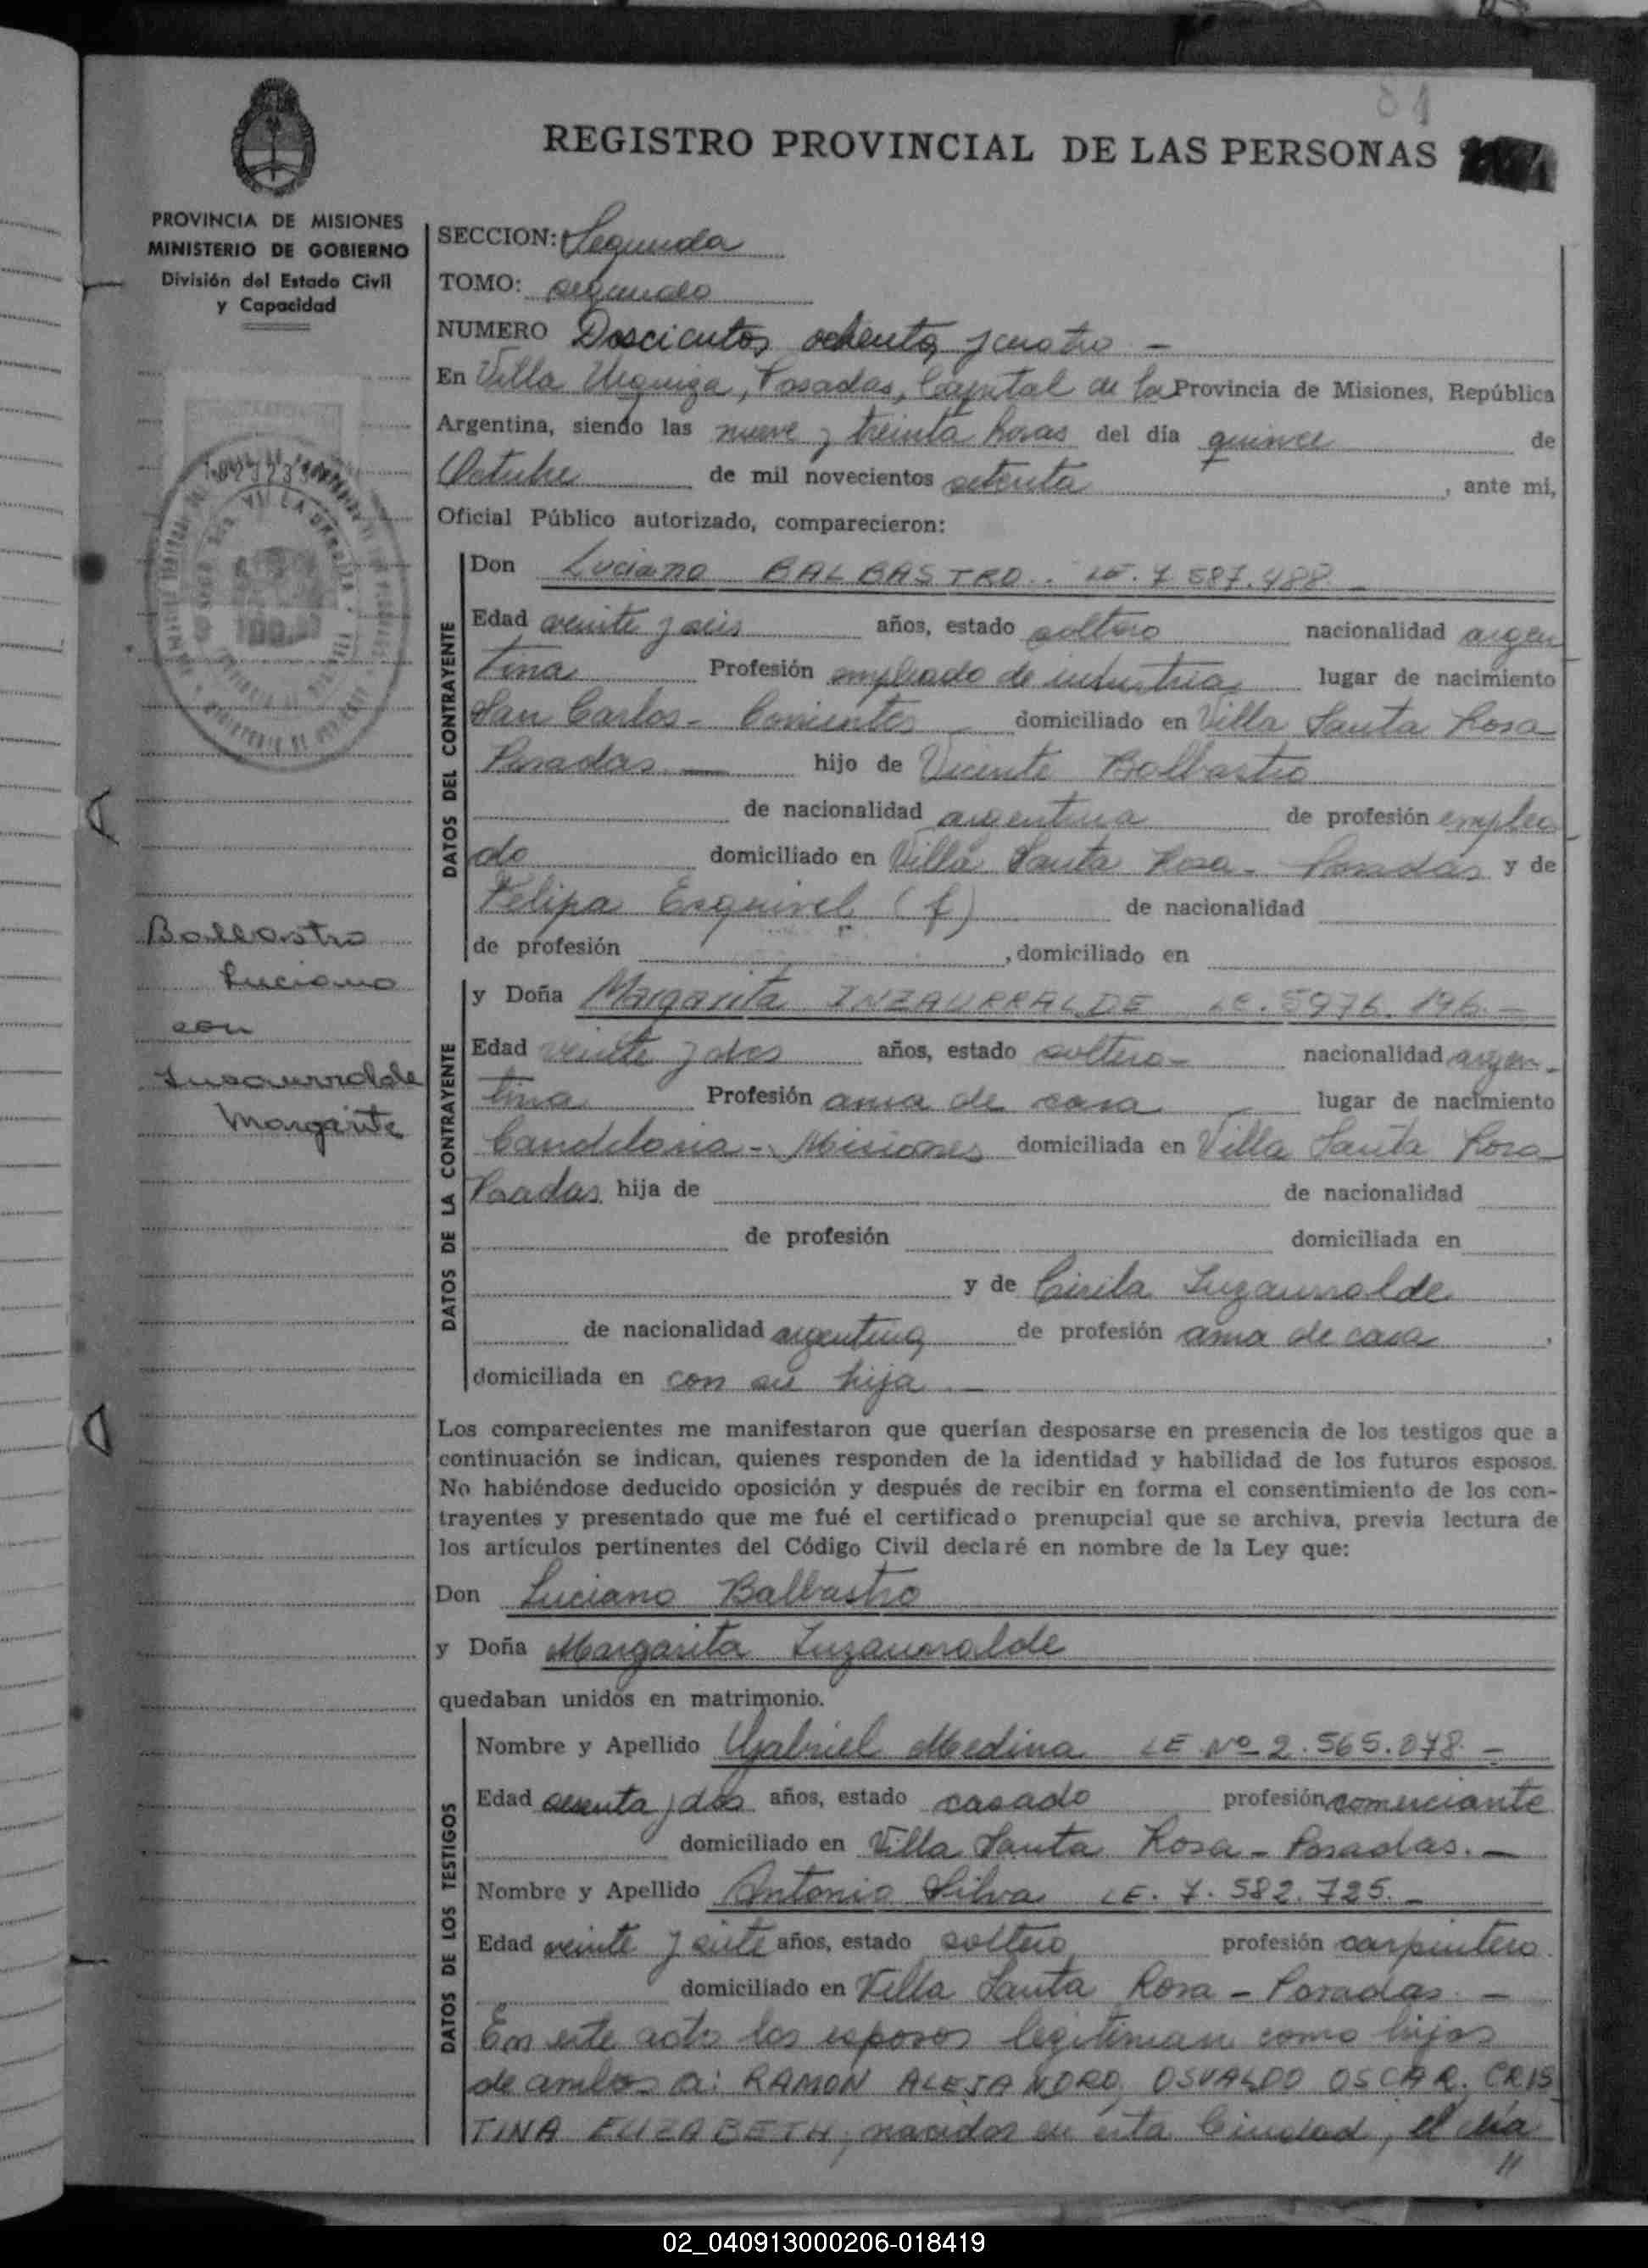 81
REGISTRO PROVINCIAL DE LAS PERSONAS
PROVINCIA DE MISIONES
MINISTERIO DE GOBIERNO
División del Estado Civil
y Capacidad
SECCION: Segunda
TOMO: segundo
NUMERO Doscientos ochenta y cuatro -
En Villa Urquiza, Posadas, Capital de la Provincia de Misiones, República
Argentina, siendo las nueve y treinta horas del día quince de
Octubre de mil novecientos setenta, ante mi,
Oficial Público autorizado, comparecieron:
DATOS DEL CONTRAYENTE
Don Luciano BALBASTRO. LE. 7.587.488 -
Edad veinte y seis años, estado soltero nacionalidad argen
tina Profesión empleado de industria lugar de nacimiento
San Carlos - Corrientes domiciliado en Villa Santa Rosa
Posadas - hijo de Vicente Balbastro
de nacionalidad argentina de profesión emplea
do domiciliado en Villa Santa Rosa - Posadas y de
Felipa Esquivel (f) de nacionalidad
de profesión , domiciliado en
Balbastro
Luciano
con
Insaurralde
Margarita
DATOS DE LA CONTRAYENTE
y Doña Margarita INZAURRALDE LC. 5976.196. -
Edad veinte y dos años, estado soltera - nacionalidad argen-
tina Profesión ama de casa lugar de nacimiento
Candelaria - Misiones domiciliada en Villa Santa Rosa
Posadas hija de de nacionalidad
de profesión domiciliada en
y de Cirila Inzaurralde
de nacionalidad argentina de profesión ama de casa ,
domiciliada en con su hija -
Los comparecientes me manifestaron que querían desposarse en presencia de los testigos que a
continuación se indican, quienes responden de la identidad y habilidad de los futuros esposos.
No habiéndose deducido oposición y después de recibir en forma el consentimiento de los con-
trayentes y presentado que me fué el certificado prenupcial que se archiva, previa lectura de
los artículos pertinentes del Código Civil declaré en nombre de la Ley que:
Don Luciano Balbastro
y Doña Margarita Inzaurralde
quedaban unidos en matrimonio.
DATOS DE LOS TESTIGOS
Nombre y Apellido Gabriel Medina LE Nº 2.565.078. -
Edad sesenta y dos años, estado casado profesión comerciante
domiciliado en Villa Santa Rosa - Posadas. -
Nombre y Apellido Antonio Silva LE. 7.582.725. -
Edad veinte y siete años, estado soltero profesión carpintero.
domiciliado en Villa Santa Rosa - Posadas. -
En este acto los esposos legitiman como hijos
de ambos a: RAMON ALEJANDRO, OSVALDO OSCAR, CRIS
TINA ELIZABETH, nacidos en esta Ciudad, el día
//
02_040913000206-018419